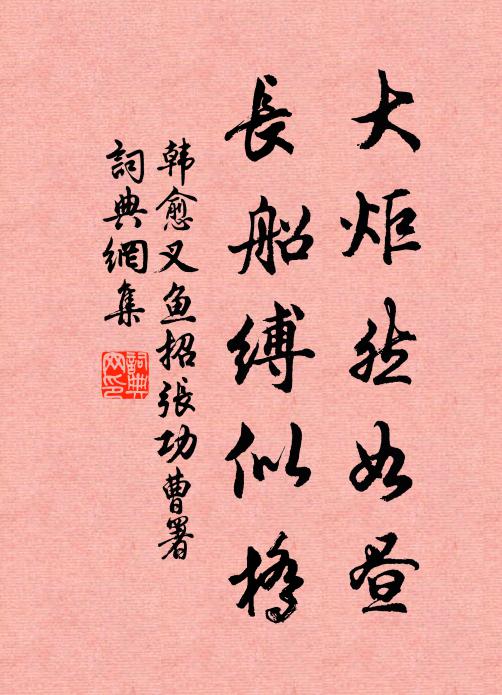 大炬然如昼
長船縛似橋
韩愈叉鱼招張功曹署
詞典網集
詞典网印